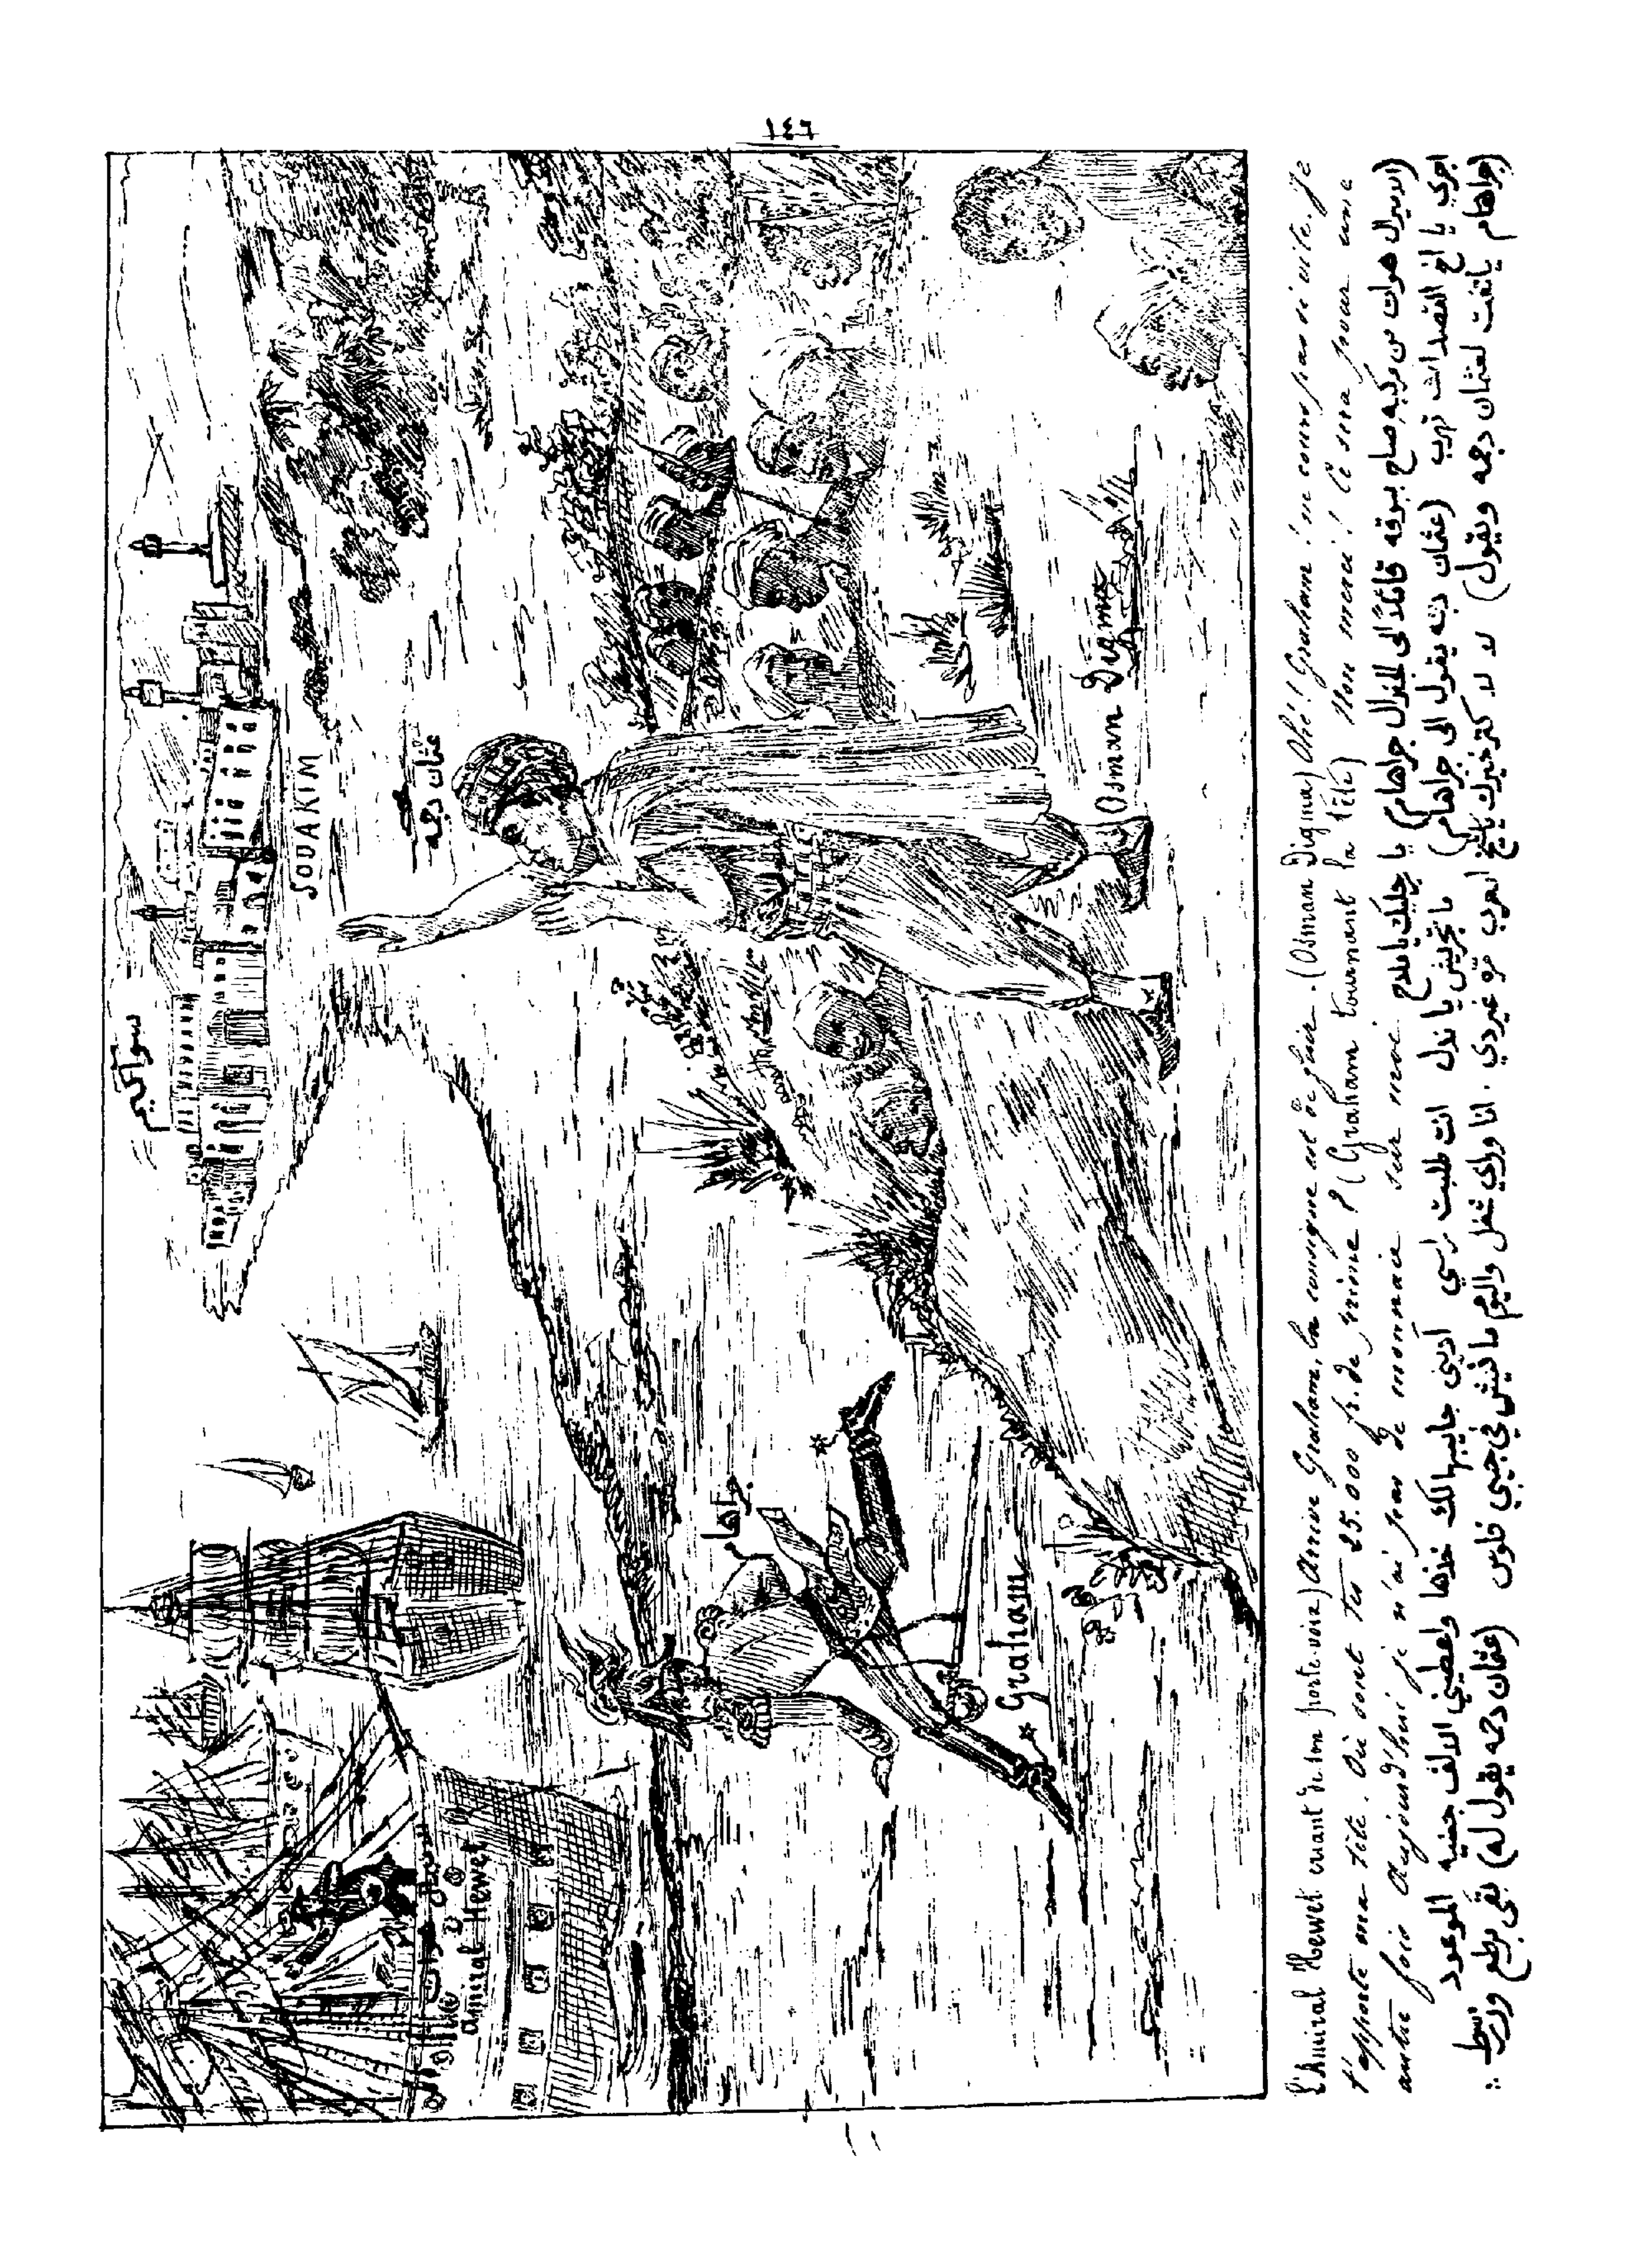 ١٤٦
سواكيم
SOUAKIM
عثمان دجمه
Osman Digma
جراهام
Graham
amiral Hewet
L'Amiral Hewet criant de son porte-voix) Arrive Graham, la consigne est de fuir. (Osman Digma) Ohé! Graham! ne cours pas si vite. Je
t'apporte ma tête. Où sont tes 25.000 fr. de prime? (Graham tournant la tête) Non merci! Ce sera pour une
autre fois Aujourd'hui je n'ai pas de monnaie sur moi.
(الاميرال هوات من مركبه صاح ببوقه قائلا الى الجنرال جراهام) يا جراهام
اجري يا اخ القصد انك تهرب (عثمان دجمه يقول الى جراهام) ما تجريش يا ندل انت طلبت راسي أديني جايبها لك خذها واعطيني الالف جنيه الموعود
(جراهام يلتفت لعثمان دجمه ويقول) لا لا كتر خيرك يا شيخ العرب مره غيردي . انا وراي شغل واليوم ما فيش في جيبي فلوس (عثمان دجمه يقول له) بقى